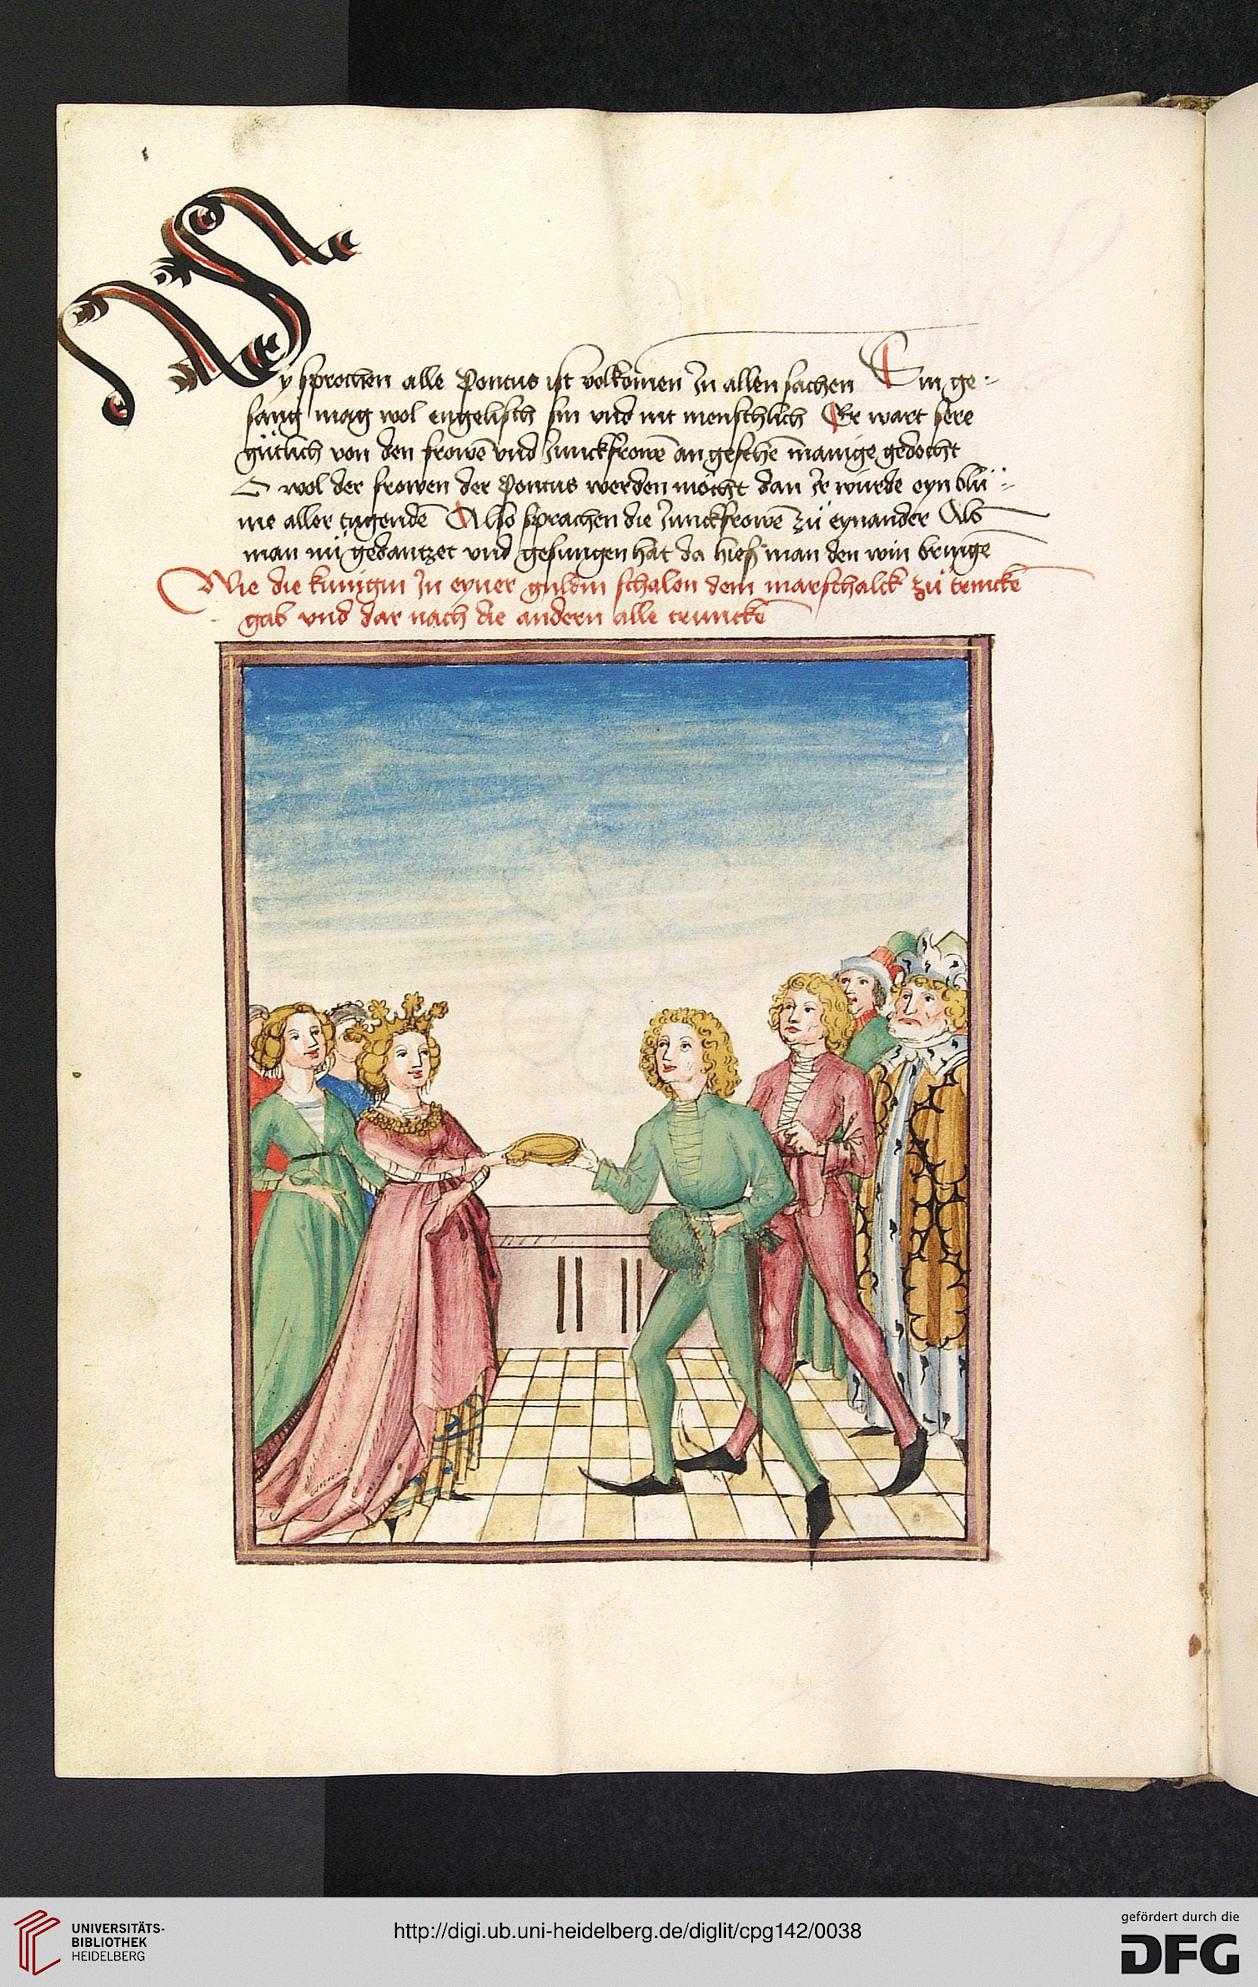 Sy sprochen alle Pontus ist volkomen Jn allen sachen Sin ge-
sang mag wol engelisch sin vnd nit menschlich Er wart sere
gütlich von den frowē vnd Junckfrowē an gesehē manige gedocht
O wol der frowen der Pontus werden möcht dan Jr würde eyn blü-
me aller tugendē Also sprachen die Junckfrowē zü eynander Als
man nü gedantzet vnd gesungen hat da hieß man den win bringē
Wie die kunigin Jn eyner guldin schalen dem marschalck zü trinckē
gab vnd dar nach die andern alle trunckē
UNIVERSITÄTS-
BIBLIOTHEK
HEIDELBERG
http://digi.ub.uni-heidelberg.de/diglit/cpg142/0038
gefördert durch die
DFG